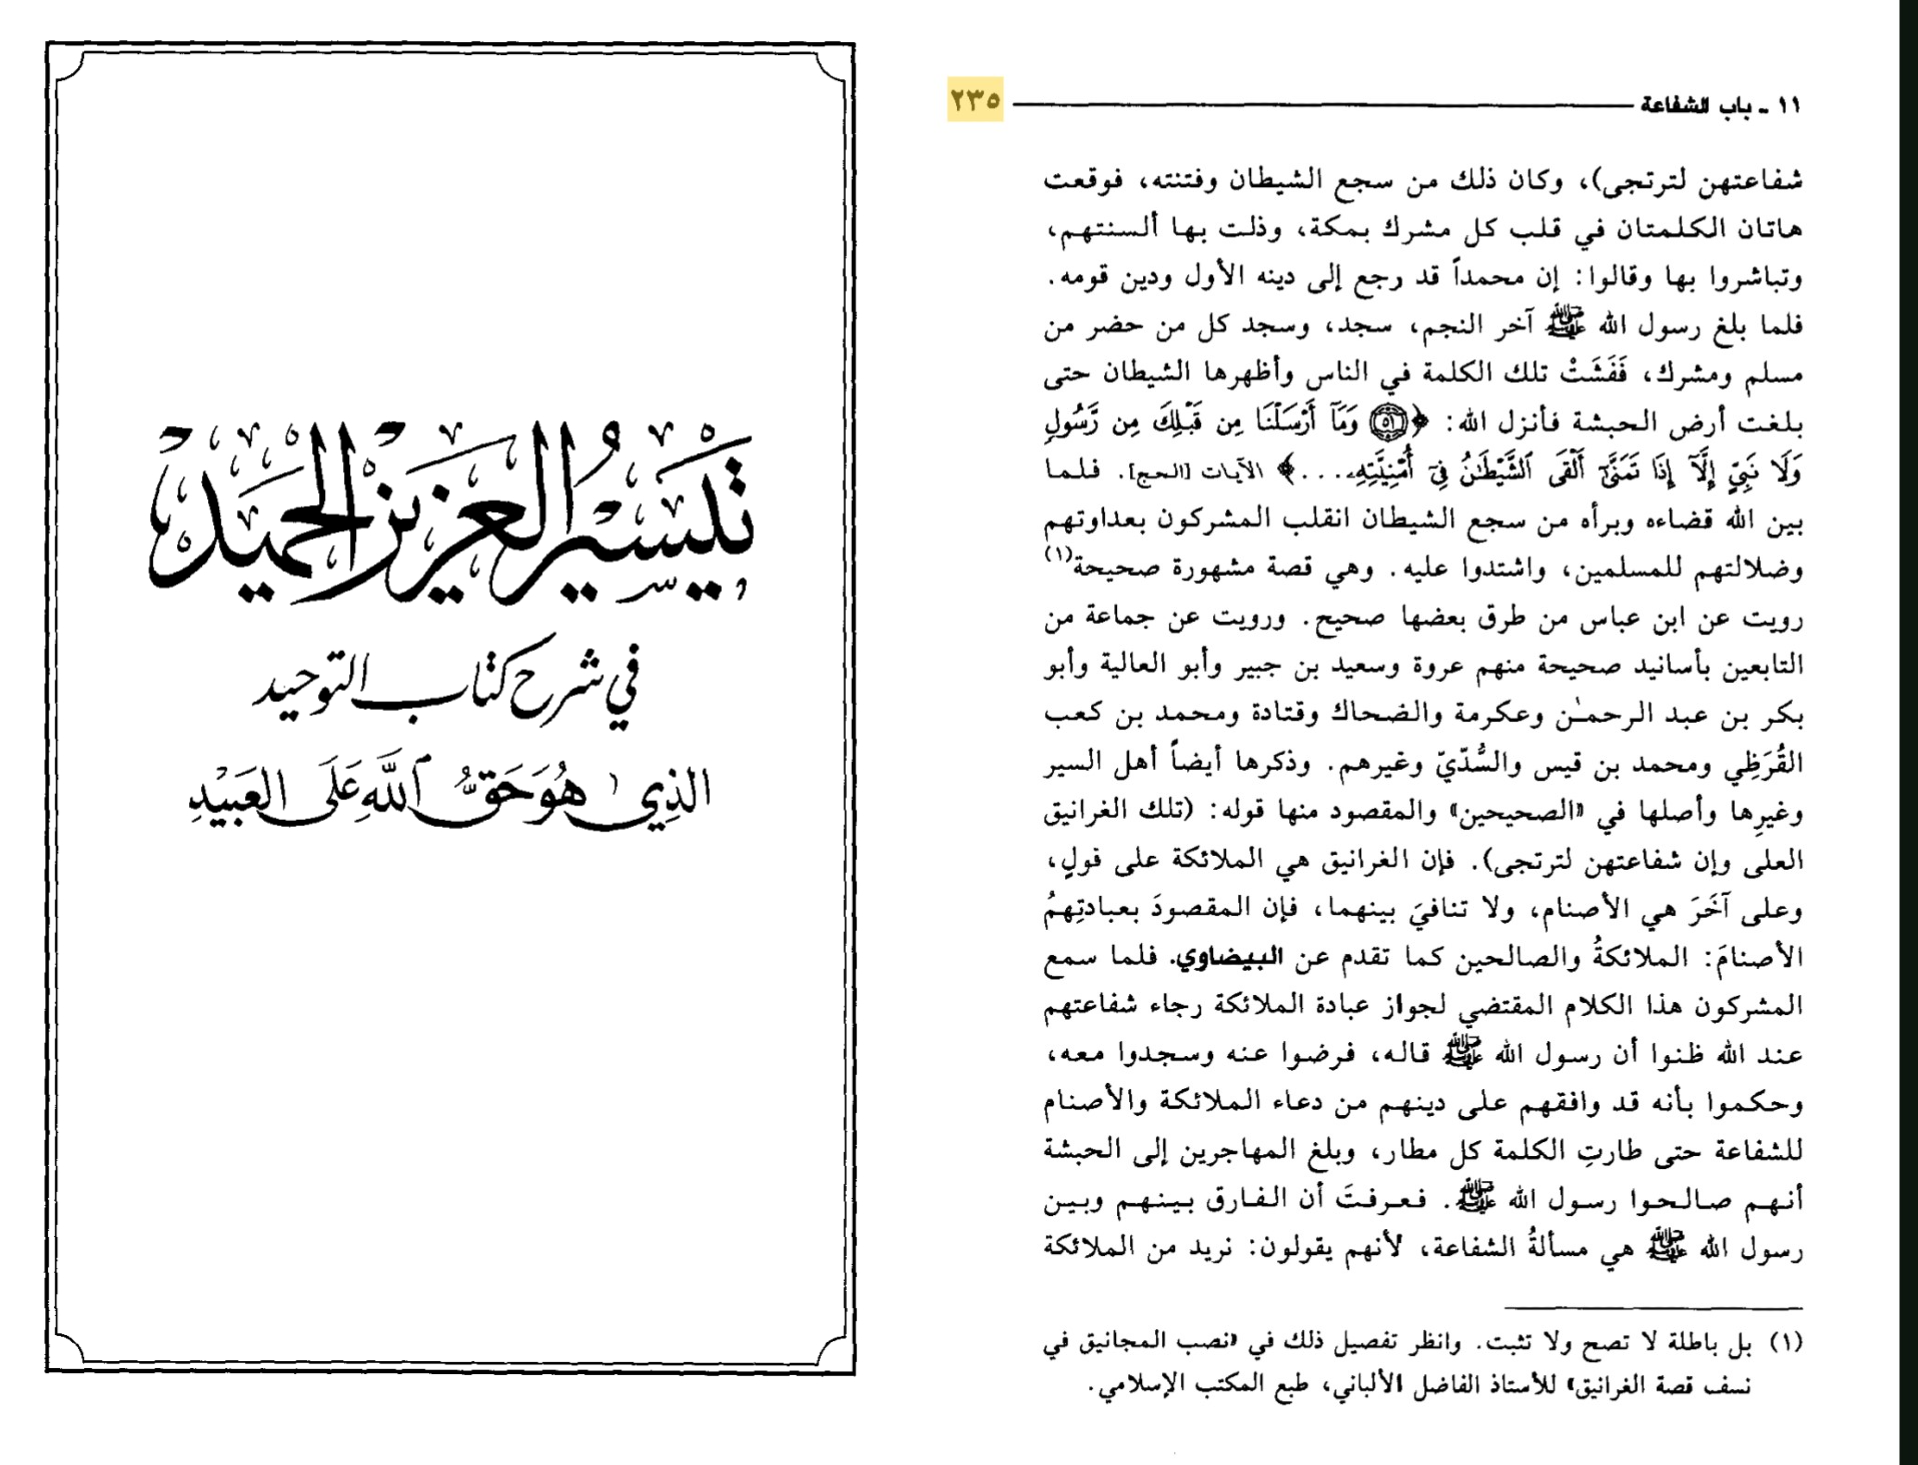 ١١ - باب الشفاعة ٢٣٥
شفاعتهن لترتجى)، وكان ذلك من سجع الشيطان وفتنته، فوقعت
هاتان الكلمتان في قلب كل مشرك بمكة، وذلت بها ألسنتهم،
وتباشروا بها وقالوا: إن محمداً قد رجع إلى دينه الأول ودين قومه.
فلما بلغ رسول الله ﷺ آخر النجم، سجد، وسجد كل من حضر من
مسلم ومشرك، فَفَشَتْ تلك الكلمة في الناس وأظهرها الشيطان حتى
بلغت أرض الحبشة فأنزل الله: ﴿٥١ وَمَآ أَرْسَلْنَا مِن قَبْلِكَ مِن رَّسُولٍ
وَلَا نَبِيٍّ إِلَّآ إِذَا تَمَنَّىٰٓ أَلْقَى ٱلشَّيْطَـٰنُ فِىٓ أُمْنِيَّتِهِۦ...﴾ الآيات [الحج]. فلما
بين الله قضاءه وبرأه من سجع الشيطان انقلب المشركون بعداوتهم
وضلالتهم للمسلمين، واشتدوا عليه. وهي قصة مشهورة صحيحة(١)
رويت عن ابن عباس من طرق بعضها صحيح. ورويت عن جماعة من
التابعين بأسانيد صحيحة منهم عروة وسعيد بن جبير وأبو العالية وأبو
بكر بن عبد الرحمـٰن وعكرمة والضحاك وقتادة ومحمد بن كعب
القُرَظِي ومحمد بن قيس والسُّدّيّ وغيرهم. وذكرها أيضاً أهل السير
وغيرِها وأصلها في «الصحيحين» والمقصود منها قوله: (تلك الغرانيق
العلى وإن شفاعتهن لترتجى). فإن الغرانيق هي الملائكة على قولٍ،
وعلى آخَرَ هي الأصنام، ولا تنافيَ بينهما، فإن المقصودَ بعبادتِهمُ
الأصنامَ: الملائكةُ والصالحين كما تقدم عن البيضاوي. فلما سمع
المشركون هذا الكلام المقتضي لجواز عبادة الملائكة رجاء شفاعتهم
عند الله ظنوا أن رسول الله ﷺ قاله، فرضوا عنه وسجدوا معه،
وحكموا بأنه قد وافقهم على دينهم من دعاء الملائكة والأصنام
للشفاعة حتى طارتِ الكلمة كل مطار، وبلغ المهاجرين إلى الحبشة
أنهم صالحوا رسول الله ﷺ. فعرفتَ أن الفارق بينهم وبين
رسول الله ﷺ هي مسألةُ الشفاعة، لأنهم يقولون: نريد من الملائكة
(١) بل باطلة لا تصح ولا تثبت. وانظر تفصيل ذلك في «نصب المجانيق في
نسف قصة الغرانيق» للأستاذ الفاضل الألباني، طبع المكتب الإسلامي.
تيسير العزيز الحميد
في شرح كتاب التوحيد
الذي هُوَ حَقُّ ٱللَّهِ عَلَى العَبِيْدِ